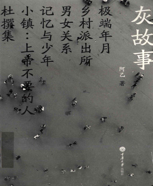 灰故事
阿乙 著
极端年月
乡村派出所
男女关系
记忆与少年
小镇：上帝不要的人
杜撰集